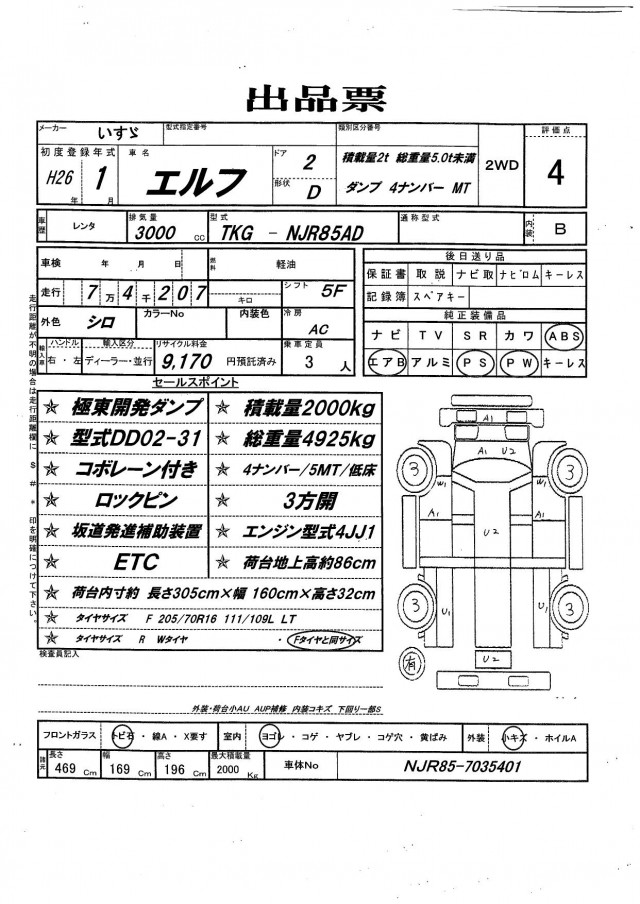 出品票
メーカー いすゞ 型式指定番号 類別区分番号 評価点
初度登録年式 車名 ドア 2 積載量2t 総重量5.0t未満 2WD 4
H26年 1月 エルフ 形状 D ダンプ 4ナンバー MT
車歴 レンタ 排気量 3000cc 型式 TKG - NJR85AD 通称型式 内装 B
車検 年 月 日 燃料 軽油
走行 7万4千207 キロ シフト 5F
外色 シロ カラーNo 内装色 冷房 AC
輸入車 ハンドル 右・左 輸入区分 ディーラー・並行 リサイクル料金 9,170 円預託済み 乗車定員 3人
後日送り品
保証書 取説 ナビ取 ナビロム キーレス
記録簿 スペアキー
純正装備品
ナビ TV SR カワ ABS
エアB アルミ PS PW キーレス
セールスポイント
☆ 極東開発ダンプ ☆ 積載量2000kg
☆ 型式DD02-31 ☆ 総重量4925kg
☆ コボレーン付き ☆ 4ナンバー/5MT/低床
☆ ロックピン ☆ 3方開
☆ 坂道発進補助装置 ☆ エンジン型式4JJ1
☆ ETC ☆ 荷台地上高約86cm
☆ 荷台内寸約 長さ305cm×幅 160cm×高さ32cm
☆ タイヤサイズ F 205/70R16 111/109L LT
☆ タイヤサイズ R Wタイヤ ・Fタイヤと同サイズ
走行距離が不明の場合は走行距離欄に $ # * 印を明確につけて下さい。
A1
A1 U2
3 W1 W1 3
A1 A1
U2
3 U1 U1 3
有 U2
検査員記入
外装・荷台小AU AUP補修 内装コキズ 下回り一部S
フロントガラス トビ石・線A・X要す 室内 ヨゴレ・コゲ・ヤブレ・コゲ穴・黄ばみ 外装 小キズ・ホイルA
諸元 長さ 469 Cm 幅 169 Cm 高さ 196 Cm 最大積載量 2000 Kg 車体No NJR85-7035401